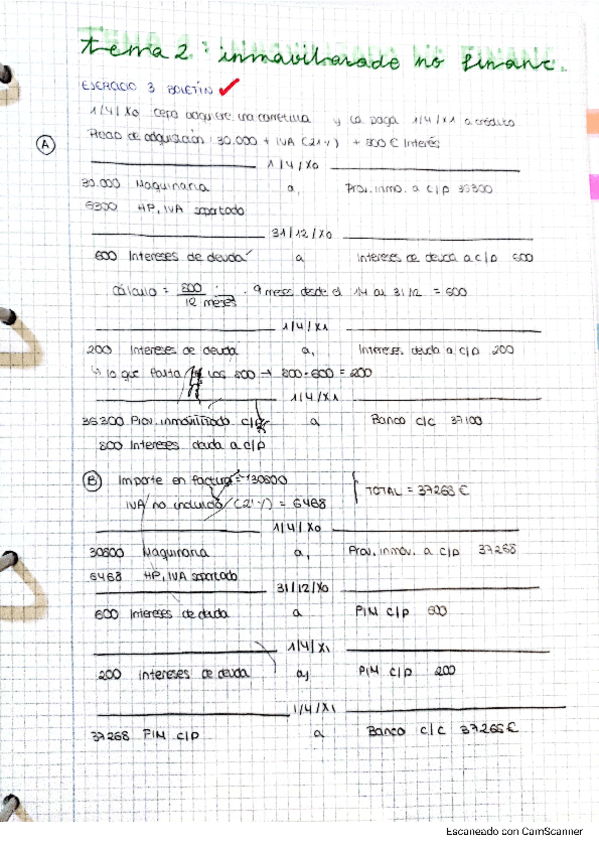 Tema 2: inmovilizado no financ.
EJERCICIO 3 BOLETÍN
1/4/X0 cepa adquiere una carretilla y la paga 1/4/X1 a crédito
A Precio de adquisición: 30.000 + IVA (21%) + 800 € Interés
1/4/X0
30.000 Maquinaria a, Prov. inmo. a c/p 36300
6300 HP, IVA soportado
31/12/X0
600 Intereses de deuda a Intereses de deuda a c/p 600
Cálculo = 800 / 12 meses · 9 meses desde el 1/4 al 31/12 = 600
1/4/X1
200 Intereses de deuda a, Intereses deuda a c/p 200
↳ lo que falta los 800 → 800-600 = 200
1/4/X1
36300 Prov. inmovilizado c/p a Banco c/c 37100
800 Intereses deuda a c/p
B Importe en factura = 30800
IVA no incluido (21%) = 6468 TOTAL = 37268 €
1/4/X0
30800 Maquinaria a, Prov. inmov. a c/p 37268
6468 HP, IVA soportado
31/12/X0
600 Intereses de deuda a PIM c/p 600
1/4/X1
200 intereses de deuda a, PIM c/p 200
1/4/X1
37268 PIM c/p a Banco c/c 37268€
Escaneado con CamScanner